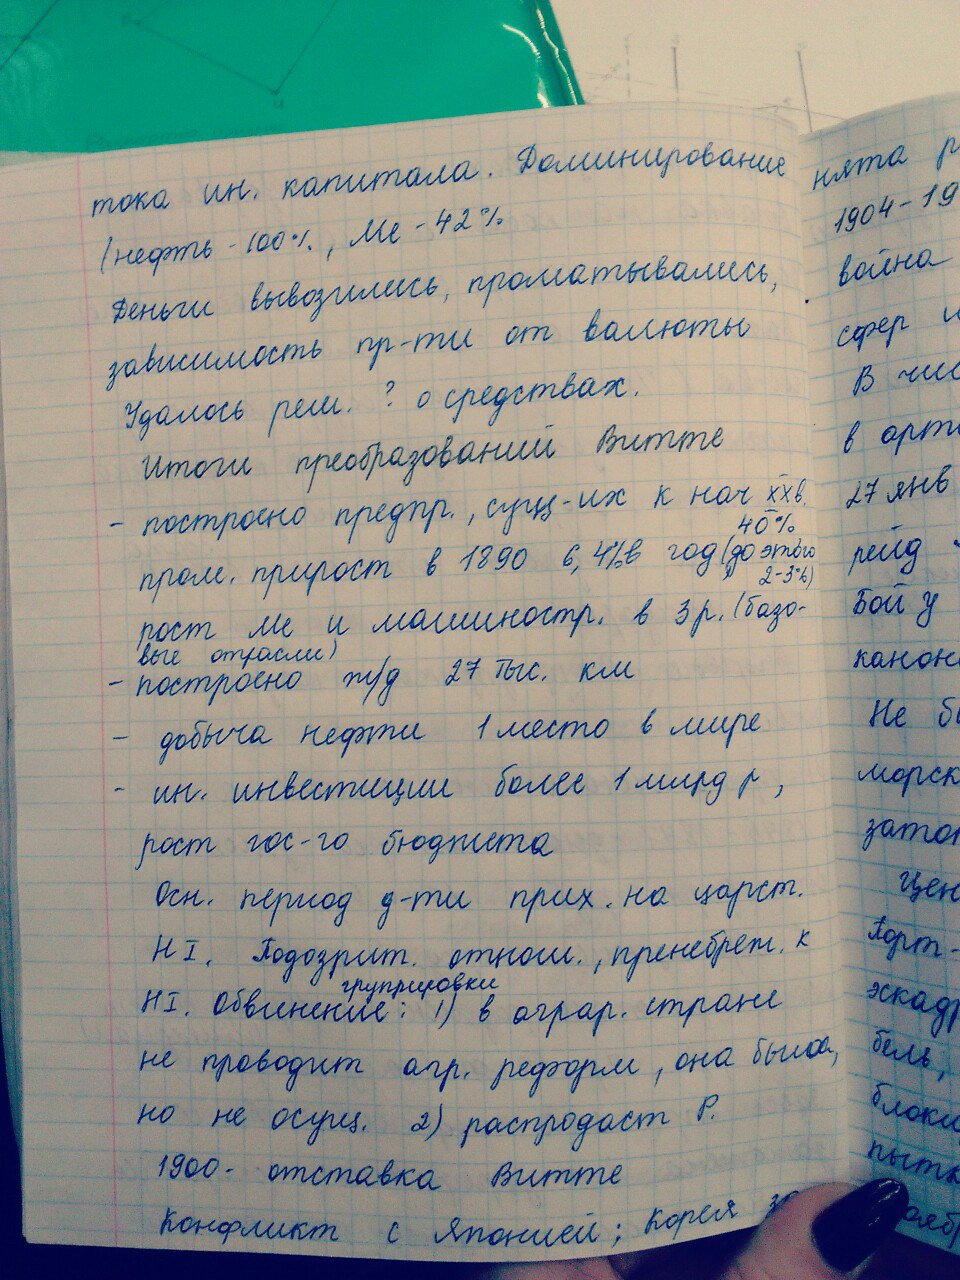 тока ин. капитала. Доминирование
(нефть - 100%, Ме - 42%
Деньги вывозились, проматывались,
зависимость пр-ти от валюты
Удалось реш. ? о средствах.
Итоги преобразований Витте
- построено предпр., сущ-их к нач XX в.
40%
пром. прирост в 1890 6,4% в год (до этого
2-3%)
рост Ме и машиностр. в 3 р. (базо-
вые отрасли)
- построено ж/д 27 тыс. км
- добыча нефти 1 место в мире
- ин. инвестиции более 1 млрд р,
рост гос-го бюджета
Осн. период д-ти прих. на царст.
Н I. Подозрит. отнош., пренебреж. к
группировки
Н I. Обвинение: 1) в аграр. стране
не проводит агр. реформ, она была,
но не осущ. 2) распродаст Р.
1900 - отставка Витте
Конфликт с Японией; Корея
нята р
1904 - 19
война
сфер
В чис
в арт
27 янв
рейд
Бой у
канон
Не б
морск
затоп
Цен
Порт-
эскадр
бель,
блоки
пытк